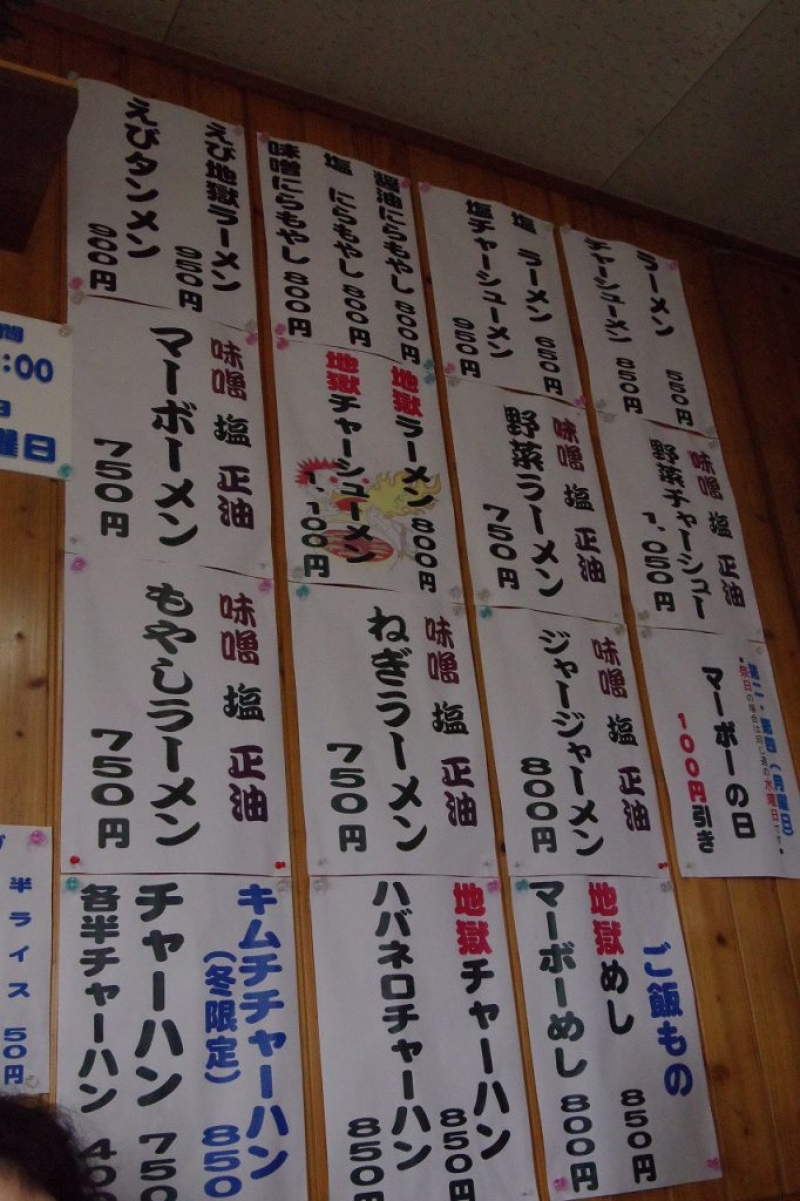 ラーメン 550円
チャーシューメン 850円
塩 ラーメン 650円
塩チャーシューメン 950円
醤油にらもやし 800円
塩 にらもやし 800円
味噌にらもやし 800円
えび地獄ラーメン 950円
えびタンメン 900円
味噌 塩 正油
野菜チャーシュー 1,050円
味噌 塩 正油
野菜ラーメン 750円
地獄ラーメン 800円
地獄チャーシューメン 1,100円
味噌 塩 正油
マーボーメン 750円
マーボーの日
100円引き
味噌 塩 正油
ジャージャーメン 800円
味噌 塩 正油
ねぎラーメン 750円
味噌 塩 正油
もやしラーメン 750円
ご飯もの
地獄めし 850円
マーボーめし 800円
地獄チャーハン 850円
ハバネロチャーハン 850円
キムチチャーハン 850
(冬限定)
チャーハン 750
各半チャーハン 400
間
:00
曜日
半ライス 50円